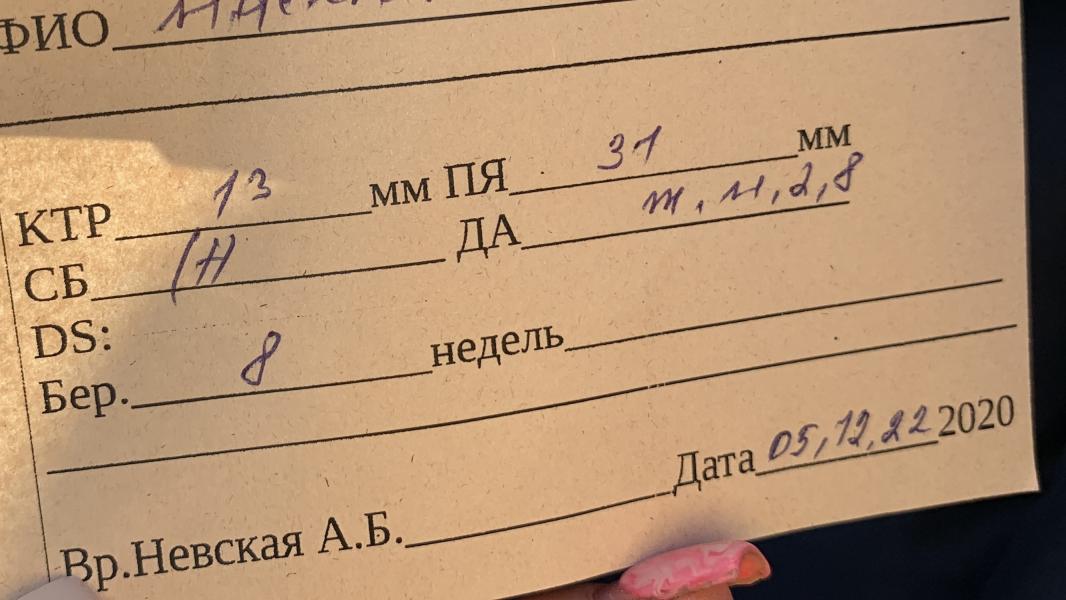 ФИО
КТР 13 мм ПЯ 31 мм
СБ (Н ДА ж.м.2,8
DS:
Бер. 8 недель
Дата 05,12,22 2020
Вр.Невская А.Б.